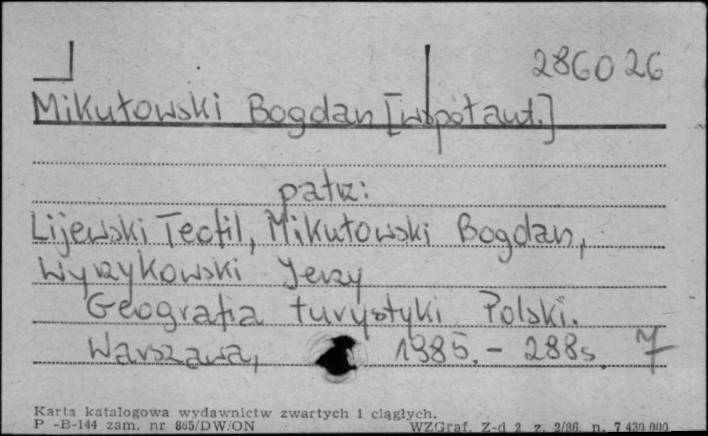 286026
Mikułowski Bogdan [współaut.]
patrz:
Lijewski Teofil, Mikułowski Bogdan,
Wyrzykowski Jerzy
Geografia turystyki Polski.
Warszawa, 1985. - 288 s. 7
Karta katalogowa wydawnictw zwartych i ciągłych.
P -B-144 zam. nr 865/DW/ON WZGraf. Z-d 2 z. 2/86. n. 7 430 000